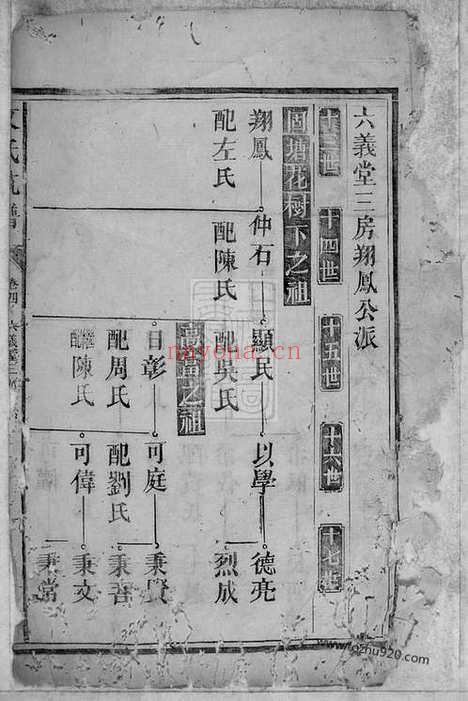 六義堂三房翔鳳公派
十三世
十四世
十五世
十六世
十七世
固塘花樹下之祖
翔鳳
仲石
顯民
以學
德亮
配左氏
配陳氏
配吳氏
烈成
之祖
日彰
可庭
秉賢
配周氏
配劉氏
秉吾
陳氏
可偉
秉文
秉常
卷四
六義堂三
nayona.cn
www.jiapu920.com